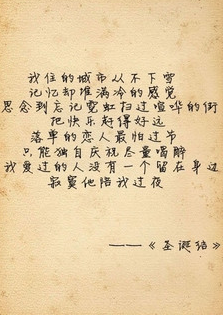 我住的城市从不下雪
记忆却堆满冷的感觉
思念到忘记霓虹扫过喧哗的街
把快乐赶得好远
落单的恋人最怕过节
只能独自庆祝尽量喝醉
我爱过的人没有一个留在身边
寂寞他陪我过夜
——《圣诞结》